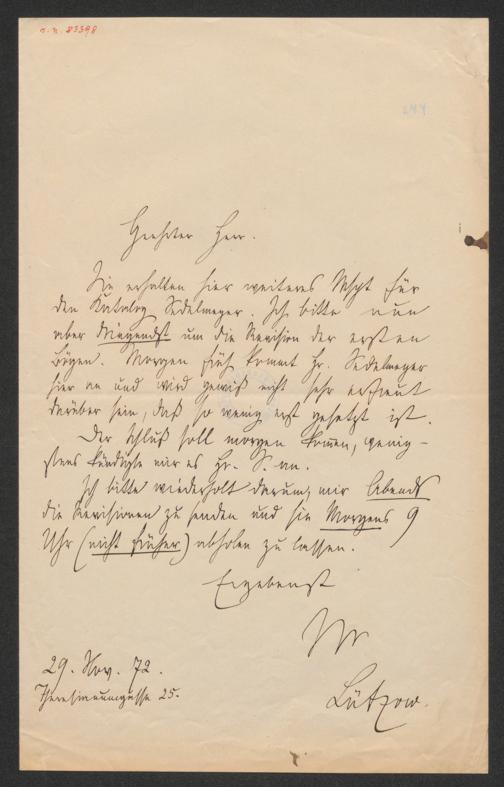 o. n. 83398
244
Geehrter Herr.
Sie erhalten hier weiteres Mscpt für
den Katalog Sedelmeyer. Ich bitte nun
aber dringendst um die Revision der ersten
Bögen. Morgen früh kommt Hr. Sedelmeyer
hier an und wird gewiß nicht sehr erfreut
darüber sein, daß so wenig erst gesetzt ist.
Der Schluß soll morgen kommen, wenig-
stens kündigte mir es Hr. S. an.
Ich bitte wiederholt darum, mir Abends
die Revisionen zu senden und sie Morgens 9
Uhr (nicht früher) abholen zu lassen.
Ergebenst
Ihr
Lützow.
29. Nov. 72.
Theresianumgasse 25.